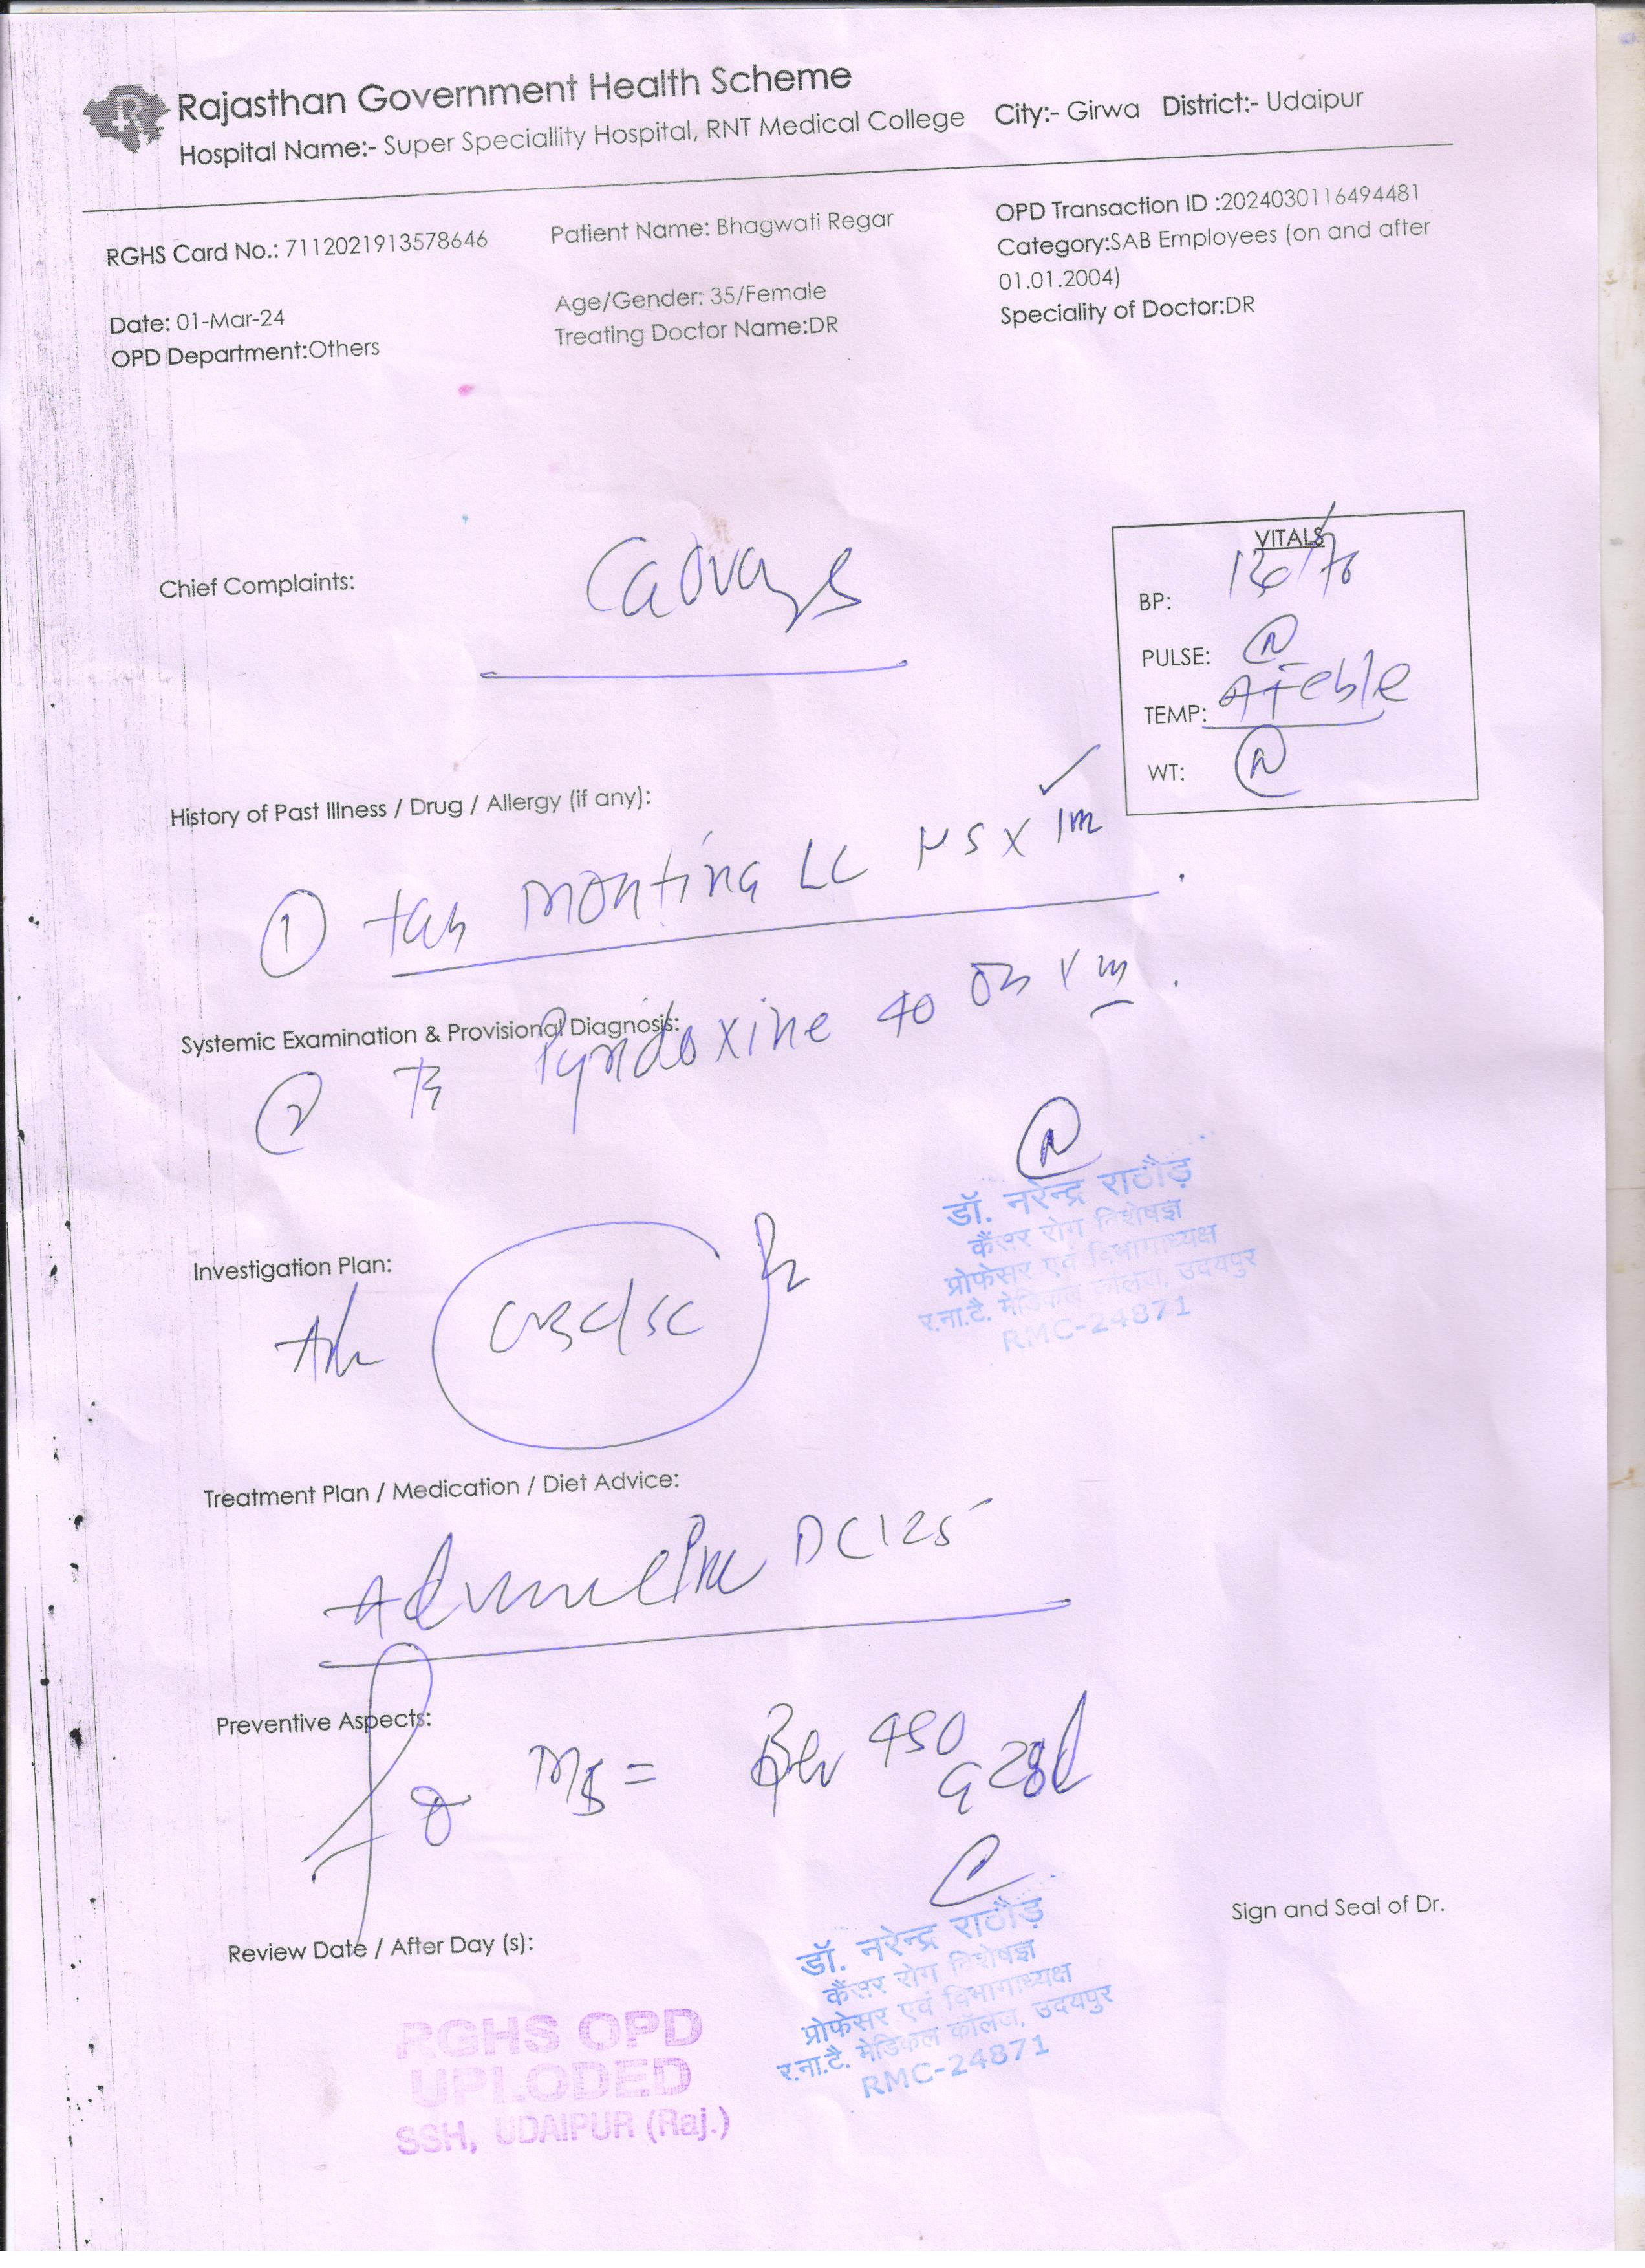 Rajasthan Government Health Scheme
Hospital Name:- Super Speciallity Hospital, RNT Medical College City:- Girwa District:- Udaipur
RGHS Card No.: 7112021913578646
Patient Name: Bhagwati Regar
OPD Transaction ID :2024030116494481
Category:SAB Employees (on and after
01.01.2004)
Date: 01-Mar-24
Age/Gender: 35/Female
Speciality of Doctor:DR
OPD Department:Others
Treating Doctor Name:DR
VITALS
Chief Complaints:
BP:
PULSE: N
TEMP: Afeble
WT: N
History of Past Illness / Drug / Allergy (if any):
1 tab montina LC HS x 1m
Systemic Examination & Provisional Diagnosis:
2 Pyridoxine 40 OD x m
N
डॉ. नरेन्द्र राठौड़
कैंसर रोग विशेषज्ञ
प्रोफेसर एवं विभागाध्यक्ष
र.ना.टै. मेडिकल कॉलेज, उदयपुर
RMC-24871
Investigation Plan:
Treatment Plan / Medication / Diet Advice:
DC 125
Preventive Aspects:
450
Sign and Seal of Dr.
Review Date / After Day (s):
डॉ. नरेन्द्र राठौड़
कैंसर रोग विशेषज्ञ
प्रोफेसर एवं विभागाध्यक्ष
र.ना.टै. मेडिकल कॉलेज, उदयपुर
RMC-24871
RGHS OPD
UPLODED
SSH, UDAIPUR (Raj.)